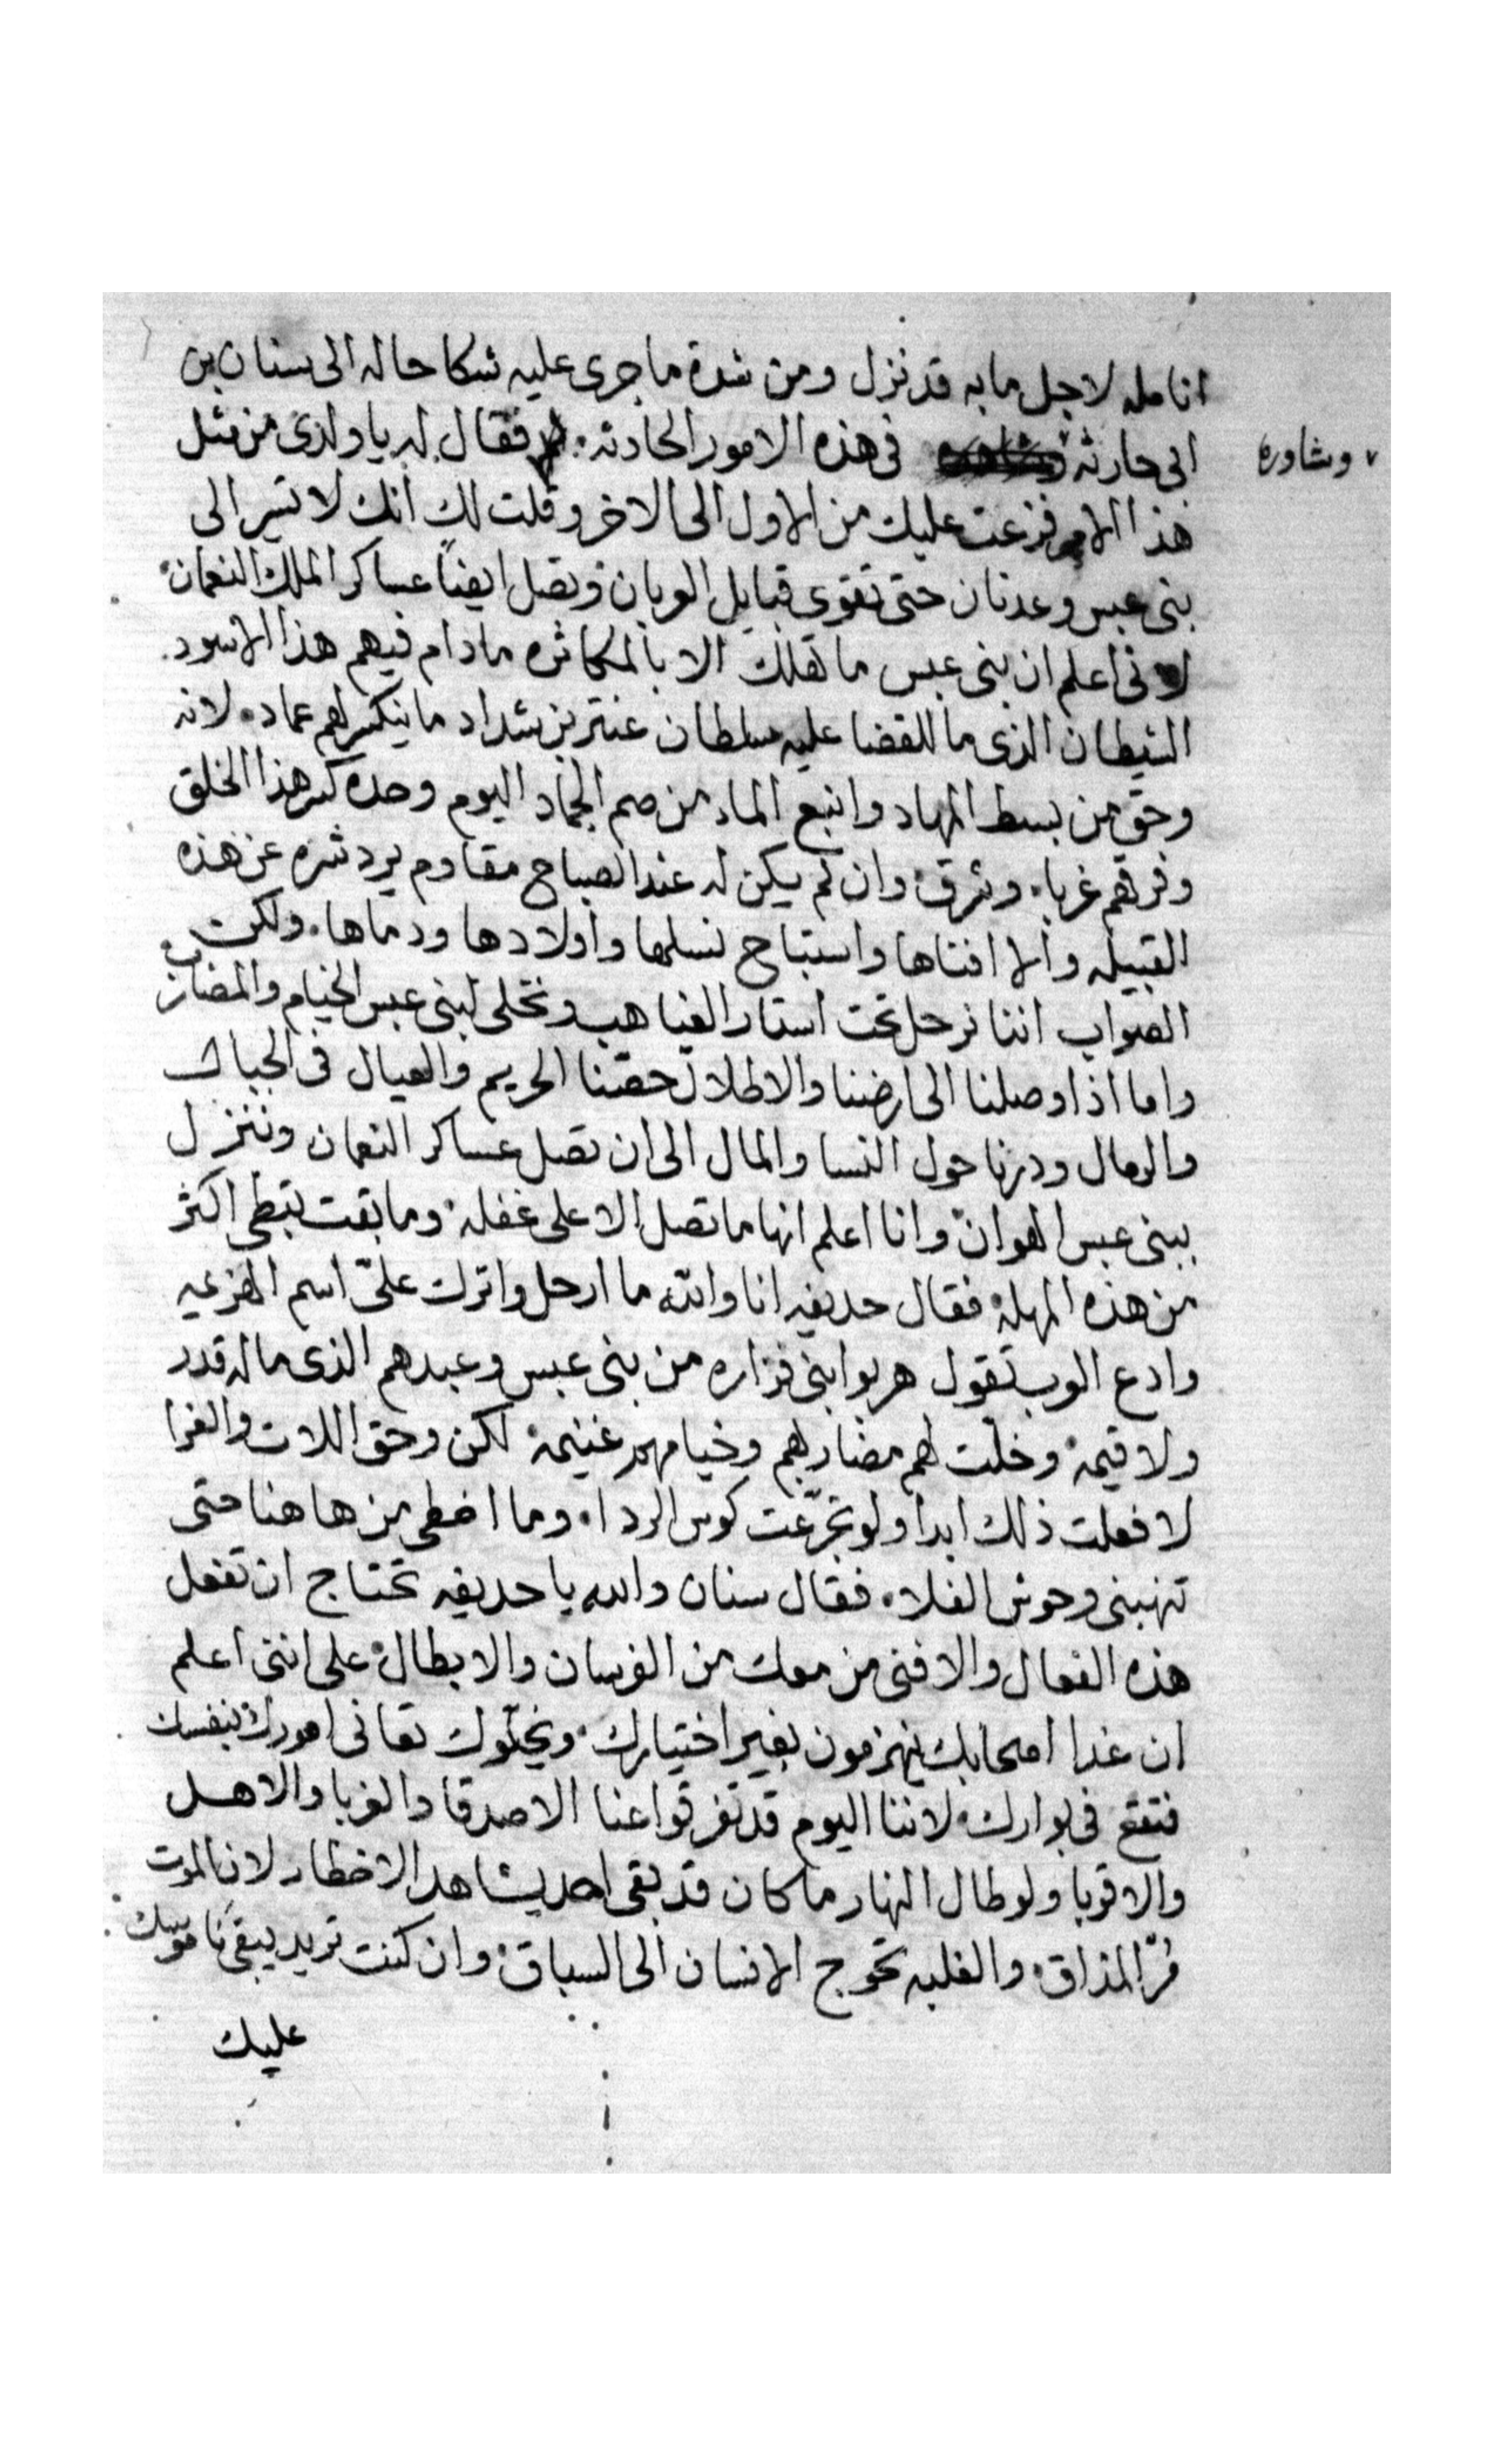 انامله لاجل ما به قد نزل ومن شدة ما جرى عليه شكا حاله الى سنان بن
ابى حارثة فى هذه الامور الحادثه فقال له يا ولدى من مثل
وشاوره
هذا الامر فزعت عليك من الاول الى الاخر وقلت لك انك لا تسير الى
بنى عبس وعدنان حتى تقوى قبايل العربان وتصل ايضاً عساكر الملك النعمان
لانى اعلم ان بنى عبس ما تهلك الا بالمكاثره ما دام فيهم هذا الاسود
الشيطان الذى ما للقضا عليه سلطان عنتر بن شداد ما ينكسر لهم عماد لانه
وحق من بسط المهاد وانبع الماء من صم الجماد اليوم وحده كسر هذا الخلق
وفرقهم غربا وشرق وان لم يكن له عند الصباح مقاوم يرد شره عن هذه
القبيله والا افناها واستباح نسلها واولادها ودماها ولكن
الصواب اننا نرحل تحت استار الغياهب ونخلى لبنى عبس الخيام والمضارب
واما اذا وصلنا الى ارضنا والاطلال حصنا الحريم والعيال فى الجبال
والرمال ودرنا حول النسا والمال الى ان تصل عساكر النعمان وننزل
ببنى عبس الهوان وانا اعلم انها ما تصل الا على غفله وما بقت تبطى اكثر
من هذه المهله فقال حديفه انا والله ما ارحل واترك علىّ اسم الهزيمه
وادع العرب تقول هربوا بنى فزاره من بنى عبس وعبدهم الذى ما له قدر
ولا قيمه وخلت لهم مضاربهم وخيامهم غنيمه لكن وحق اللات والعزا
لا فعلت ذلك ابدا ولو تجرّعت كوس الردا وما اخطى من هاهنا حتى
تنهبنى وحوش الفلاه فقال سنان والله يا حديفه تحتاج ان تفعل
هذه الفعال والا فنى من معك من الفرسان والابطال على اننى اعلم
ان غدا اصحابك ينهزمون بغير اختيارك ويخلّوك تعانى امورك بنفسك
فتقع فى بوارك لاننا اليوم قد تفرقوا عنا الاصدقا والغربا والاهل
والاقربا ولو طال النهار ما كان قد بقى احد يشاهد الاخطار لان الموت
مُرّ المذاق والغلبه تحوج الانسان الى السباق وان كنت تريد يبقى ناموسك
عليك